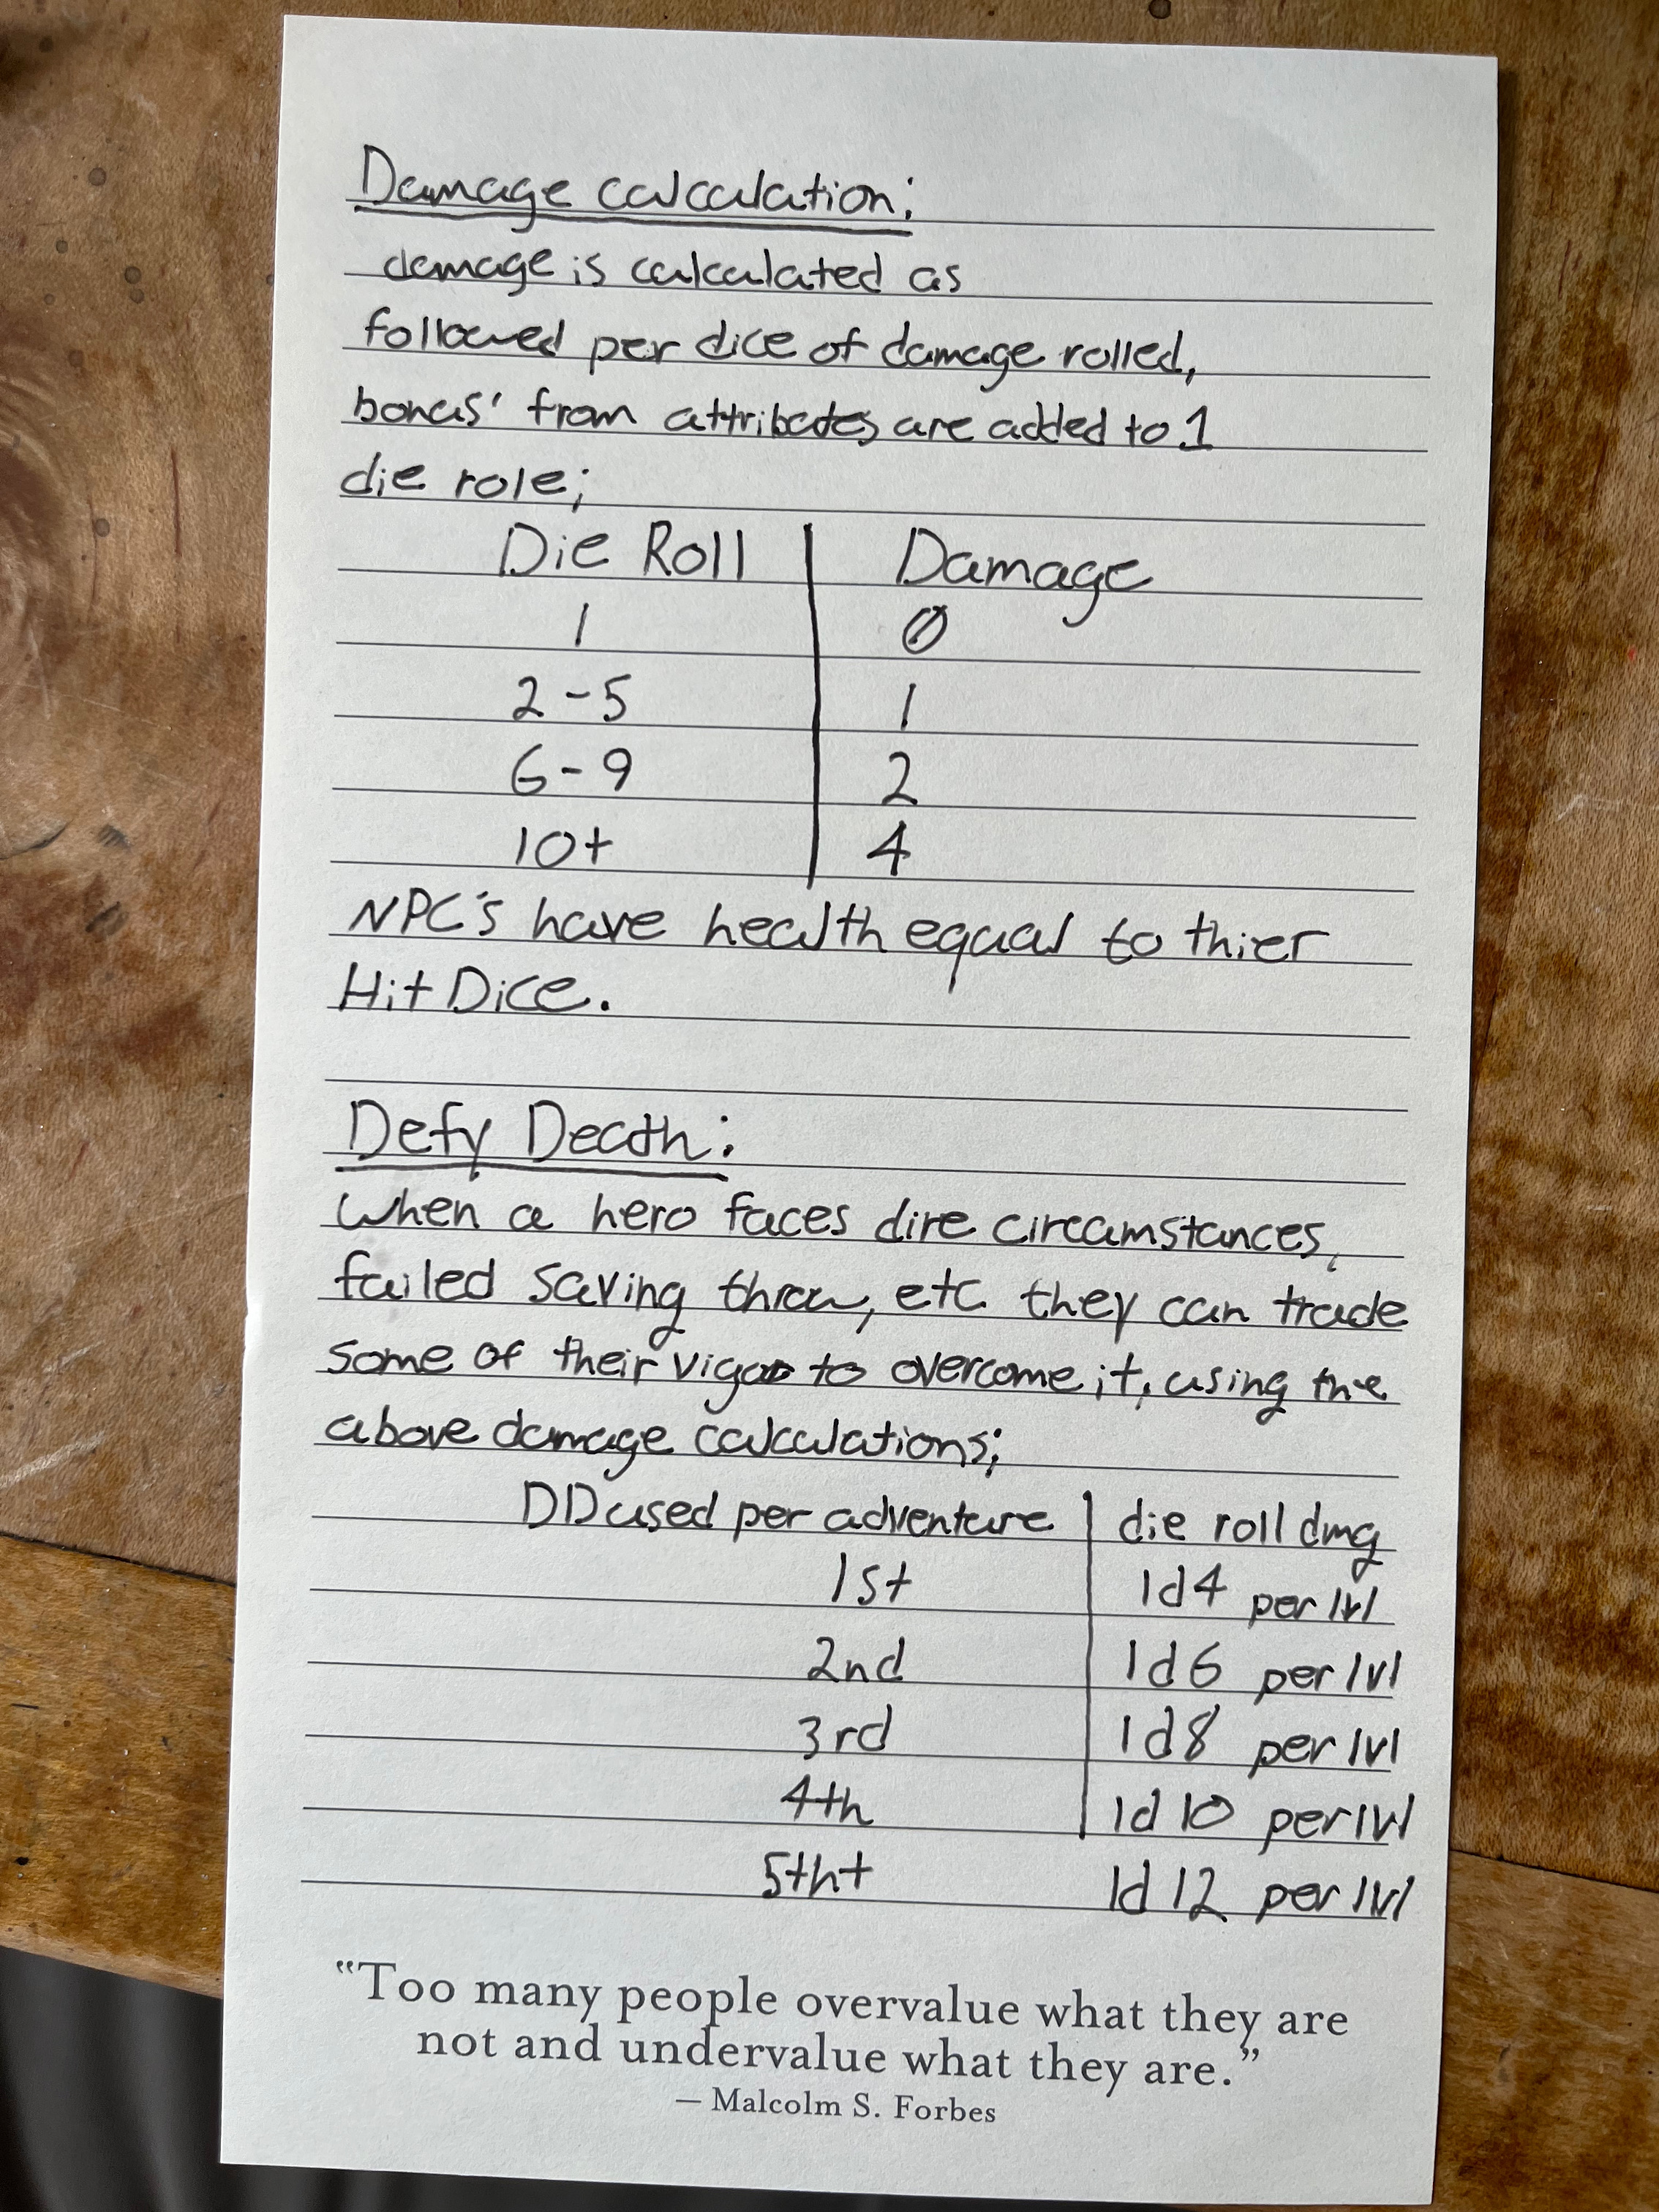 Damage calculation:
damage is calculated as
followed per dice of damage rolled,
bonus' from attributes are added to 1
die role;
Die Roll | Damage
1 | 0
2-5 | 1
6-9 | 2
10+ | 4
NPC's have health equal to thier
Hit Dice.
Defy Death:
When a hero faces dire circumstances,
failed saving throw, etc. they can trade
some of their vigor to overcome it, using the
above damage calculations;
DD used per adventure | die roll dmg
1st | 1d4 per lvl
2nd | 1d6 per lvl
3rd | 1d8 per lvl
4th | 1d10 per lvl
5th+ 1d12 per lvl
"Too many people overvalue what they are
not and undervalue what they are."
— Malcolm S. Forbes